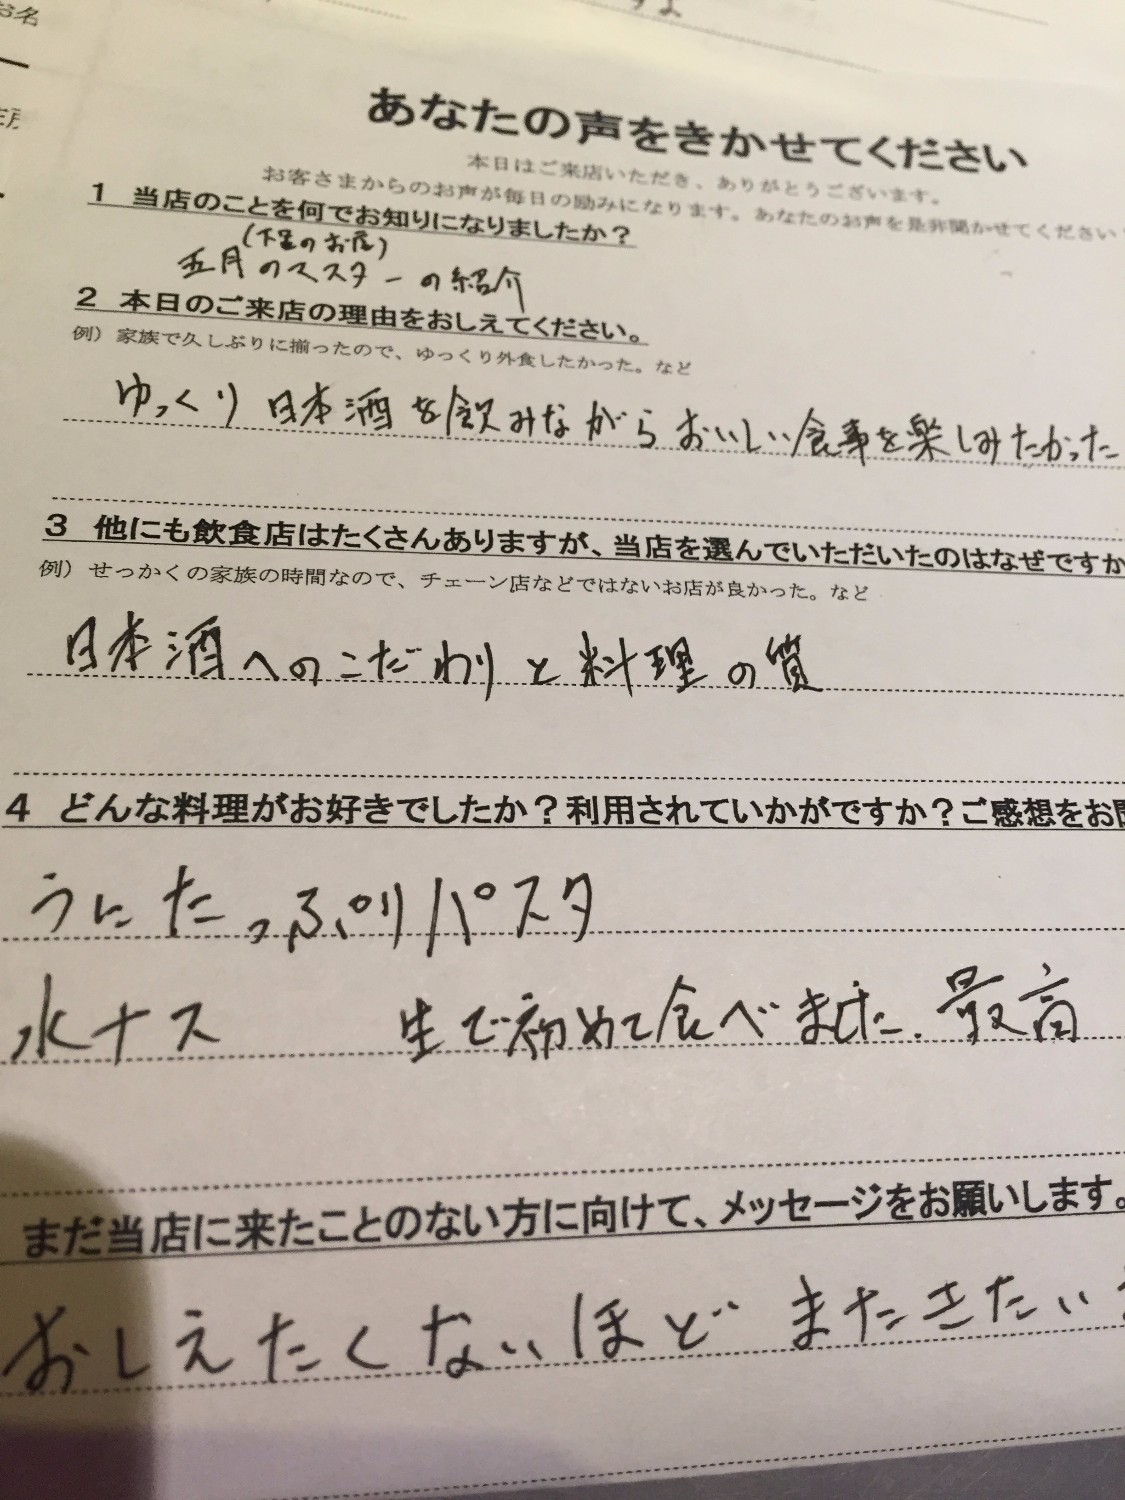 お名
あなたの声をきかせてください
本日はご来店いただき、ありがとうございます。
お客さまからのお声が毎日の励みになります。あなたのお声を是非聞かせてください
1 当店のことを何でお知りになりましたか？
のお店)
五月のマスターの紹介
2 本日のご来店の理由をおしえてください。
例）家族で久しぶりに揃ったので、ゆっくり外食したかった。など
ゆっくり日本酒を飲みながらおいしい食事を楽しみたかった
3 他にも飲食店はたくさんありますが、当店を選んでいただいたのはなぜですか
例）せっかくの家族の時間なので、チェーン店などではないお店が良かった。など
日本酒へのこだわりと料理の質
4 どんな料理がお好きでしたか？利用されていかがですか？ご感想をお
うにたっぷりパスタ
水ナス 生で初めて食べました.最高
まだ当店に来たことのない方に向けて、メッセージをお願いします。
おしえたくないほど またきたい